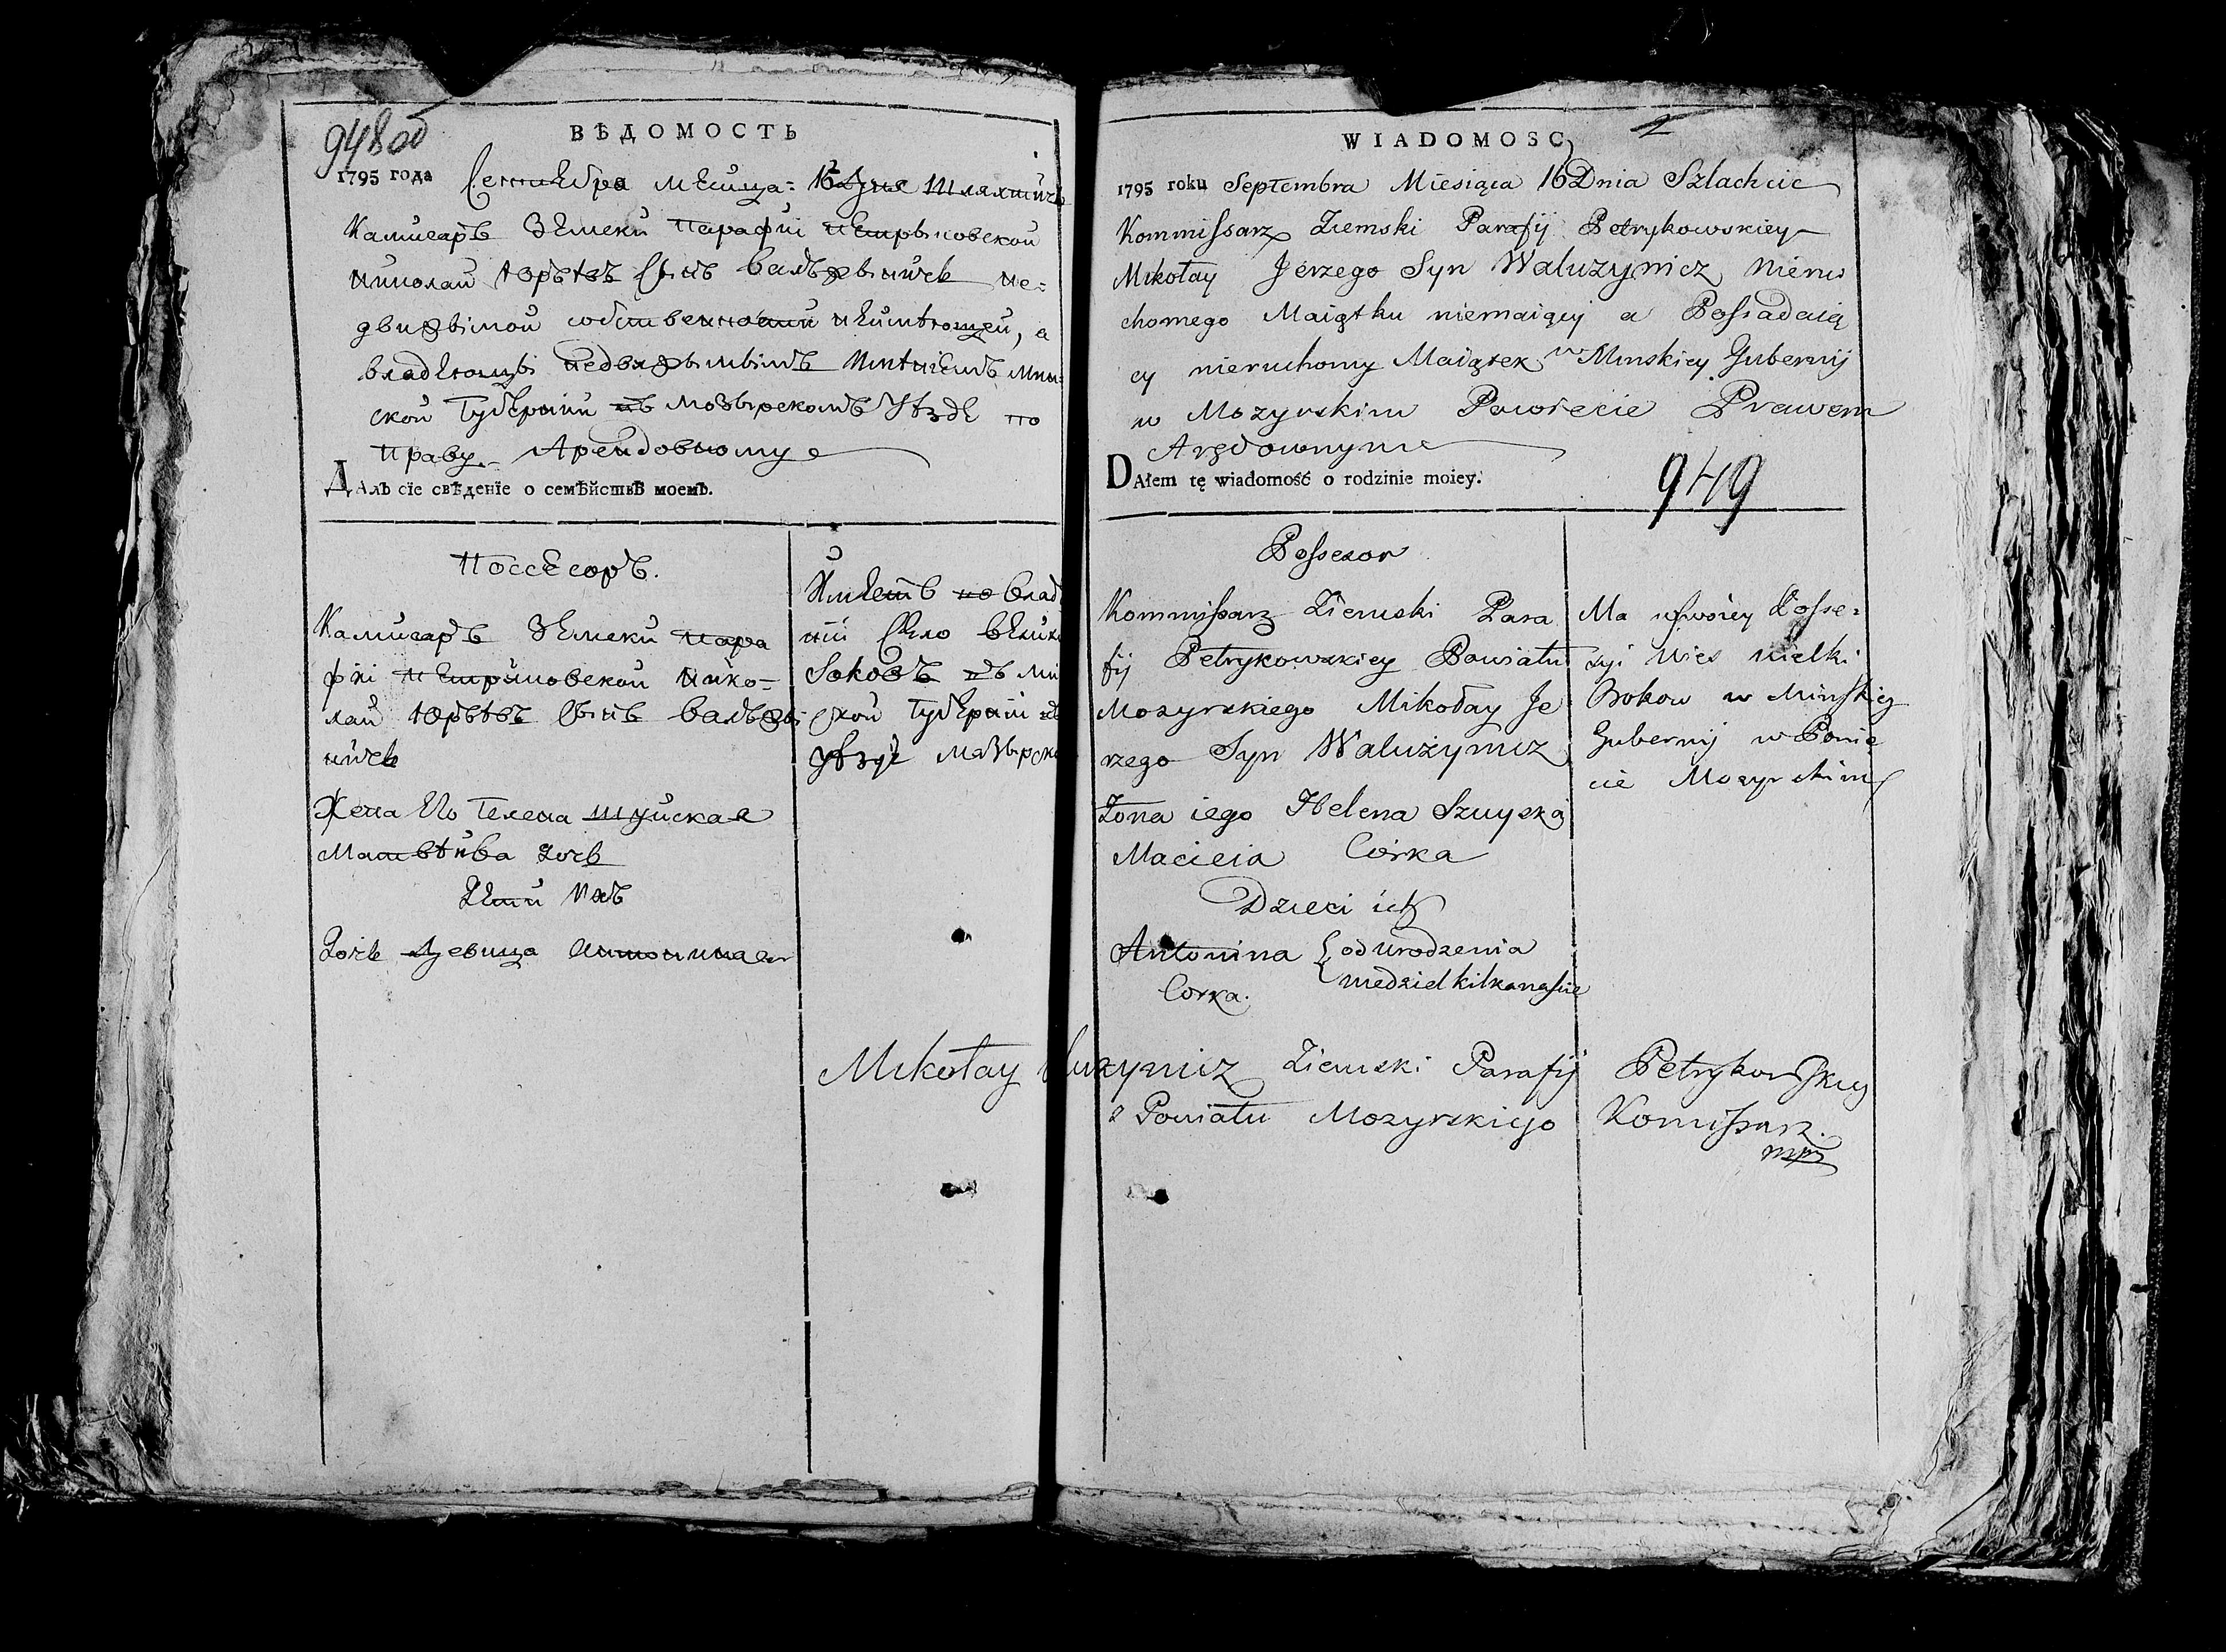 948 об
ВѢДОМОСТЬ
1795 года Сентебра месица: 16 Дня Шляхтичь
Камисаръ Земски Парафiи Петрыковской
Николай Юрьевъ Сынъ Валѣжыничь не=
движымой собственности неимѣющей, а
владеющы недвижымымъ Имѣнiемъ Мин=
ской Губернiи въ Мозырскомъ Уѣзде по
Праву Арендовному
Далъ сїе свѣденїе о семѣйствѣ моемъ.
Поссесоръ.
Камисаръ Земски Пара
фiи Петрыковской Нико=
лай Юрьевъ Сынъ Валѣжы
ничь
Жена Его Гелена Шуйская
Матвѣива Дочь
Дети Ихъ
Дочь Девица Антониная
Имеетъ во влад
нiи Село Велик
Боковъ въ Ми
ской Губернiи въ
уѣзде Мозырско
WIADOMOSC
1795 roku Septembra Miesiąca 16 Dnia Szlachcic
Kommissarz Ziemski Parafij Petrykowskiey
Mikołay Jerzego Syn Walużynicz Nieru
chomego Maiątku niemaiący a Possadaią
cy nieruchomy Maiątek w Minskiey Gubernij
w Mozyrskim Powiecie Prawem
Arędownym
DAłem tę wiadomość o rodzinie moiey.
949
Possesor
Kommissarz Ziemski Para
fij Petrykowskiey Powiatu
Mozyrskiego Mikołay Je
rzego Syn Walużynicz
Zona iego Helena Szuyska
Macieia Córka
Dzieci ich
Antonina od urodzenia
Corka. niedziel kilkanascie
Ma w swoiey Posse=
syi Wies wielki
Bokow w Minskiey
Gubernij w Powie
cie Mozyrskim
Mikołay użynicz Ziemski Parafij Petrykowskiey
z Powiatu Mozyrskiego Komissarz.
mpr